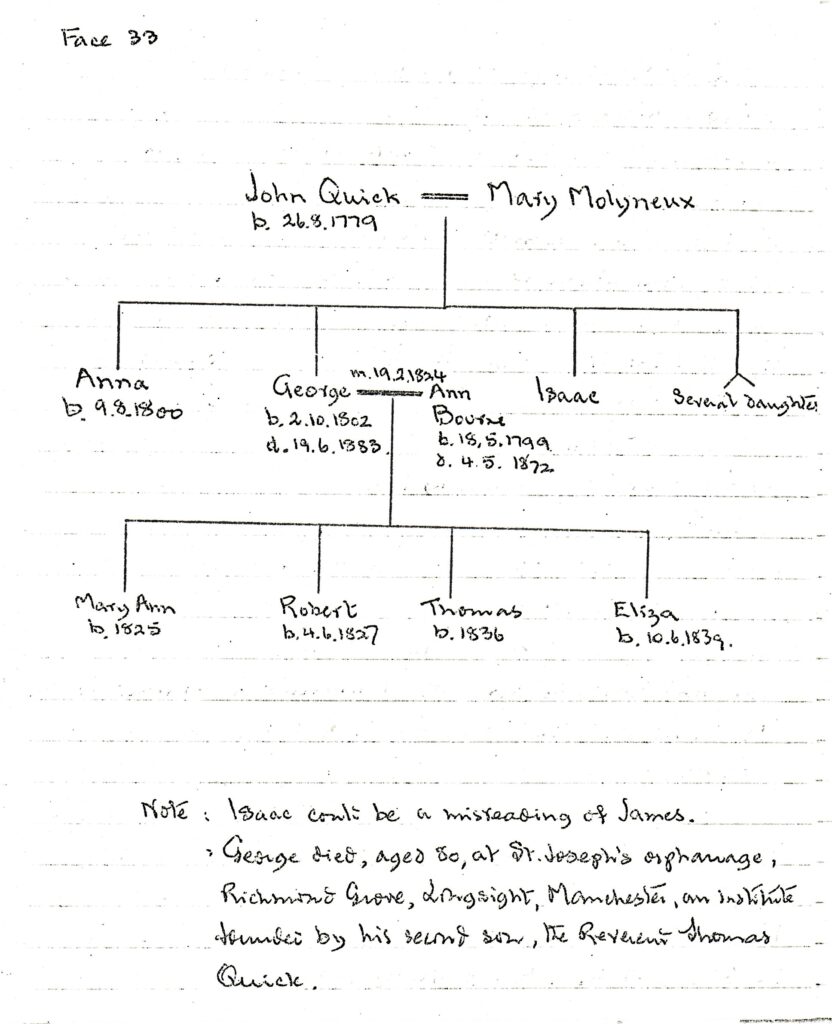 Face 33
John Quick = Mary Molyneux
b. 26.8.1779
m. 19.2.1824
Anna George Ann Isaac Several daughters
b. 9.8.1800 b. 2.10.1802 Bourne
d. 19.6.1883 b. 18.5.1799
d. 4.5.1872
Mary Ann Robert Thomas Eliza
b. 1825 b. 4.6.1827 b. 1836 b. 10.6.1839.
Note : Isaac could be a misreading of James.
: George died, aged 80, at St. Joseph's orphanage,
Richmond Grove, Longsight, Manchester, an institute
founded by his second son, the Reverend Thomas
Quick.